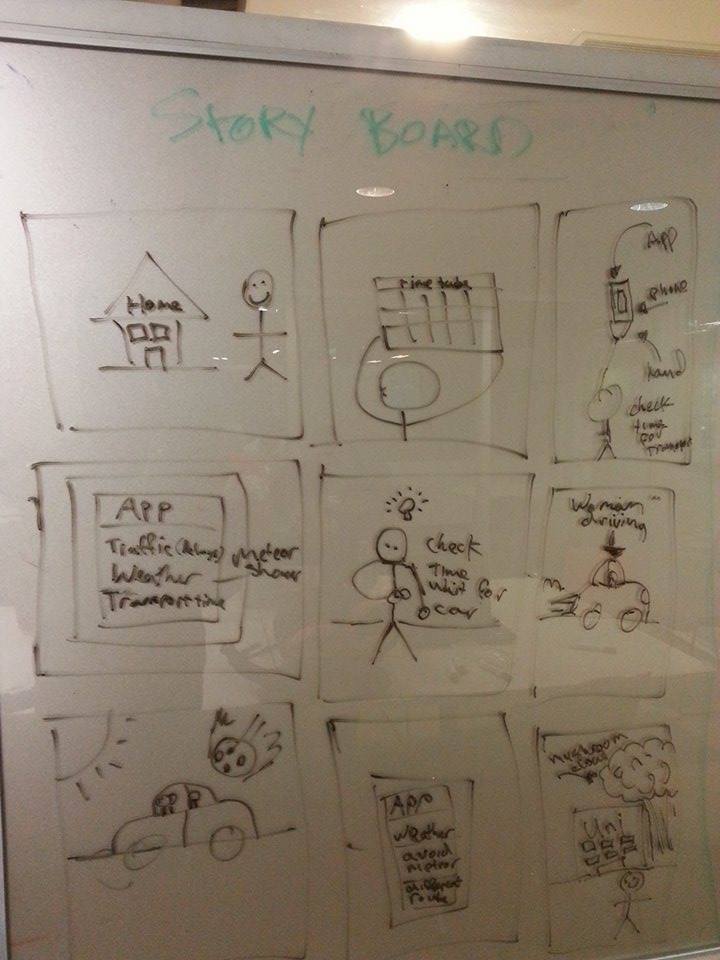 STORY BOARD
Home
Time table
App
phone
hand
check
time
for
Transport
APP
Traffic
Weather
Transport time
meteor
shower
check
Time
for
car
Woman
driving
APP
weather
avoid
meteor
different
route
mushroom
cloud
Uni